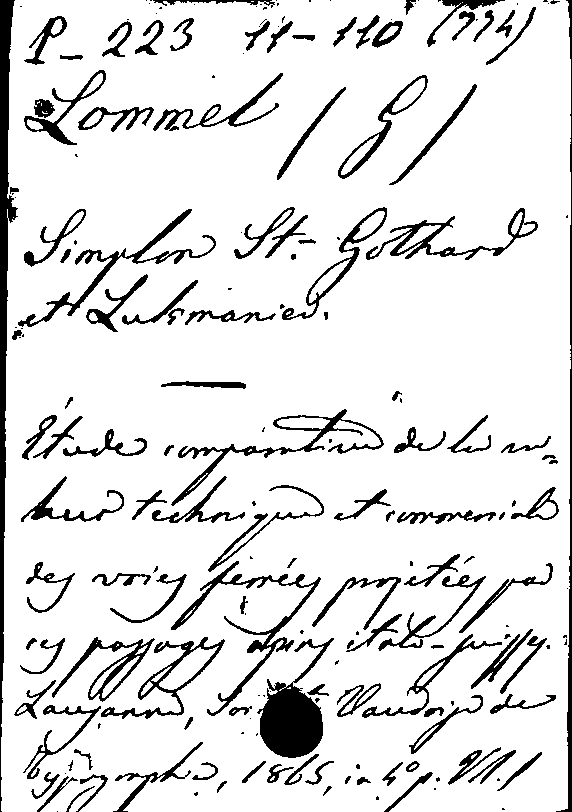 P_ 223 11-110 (774)
Lommel (G)
Simplon St.- Gothard
et Lukmanier.
Étude comparative de la va-
leur technique et commerciale
des voies ferrées projetées par
ces passages alpins italo-suisses.
Lausanne, Vaudoise de
Typographie, 1865, in 4° p. VII.)